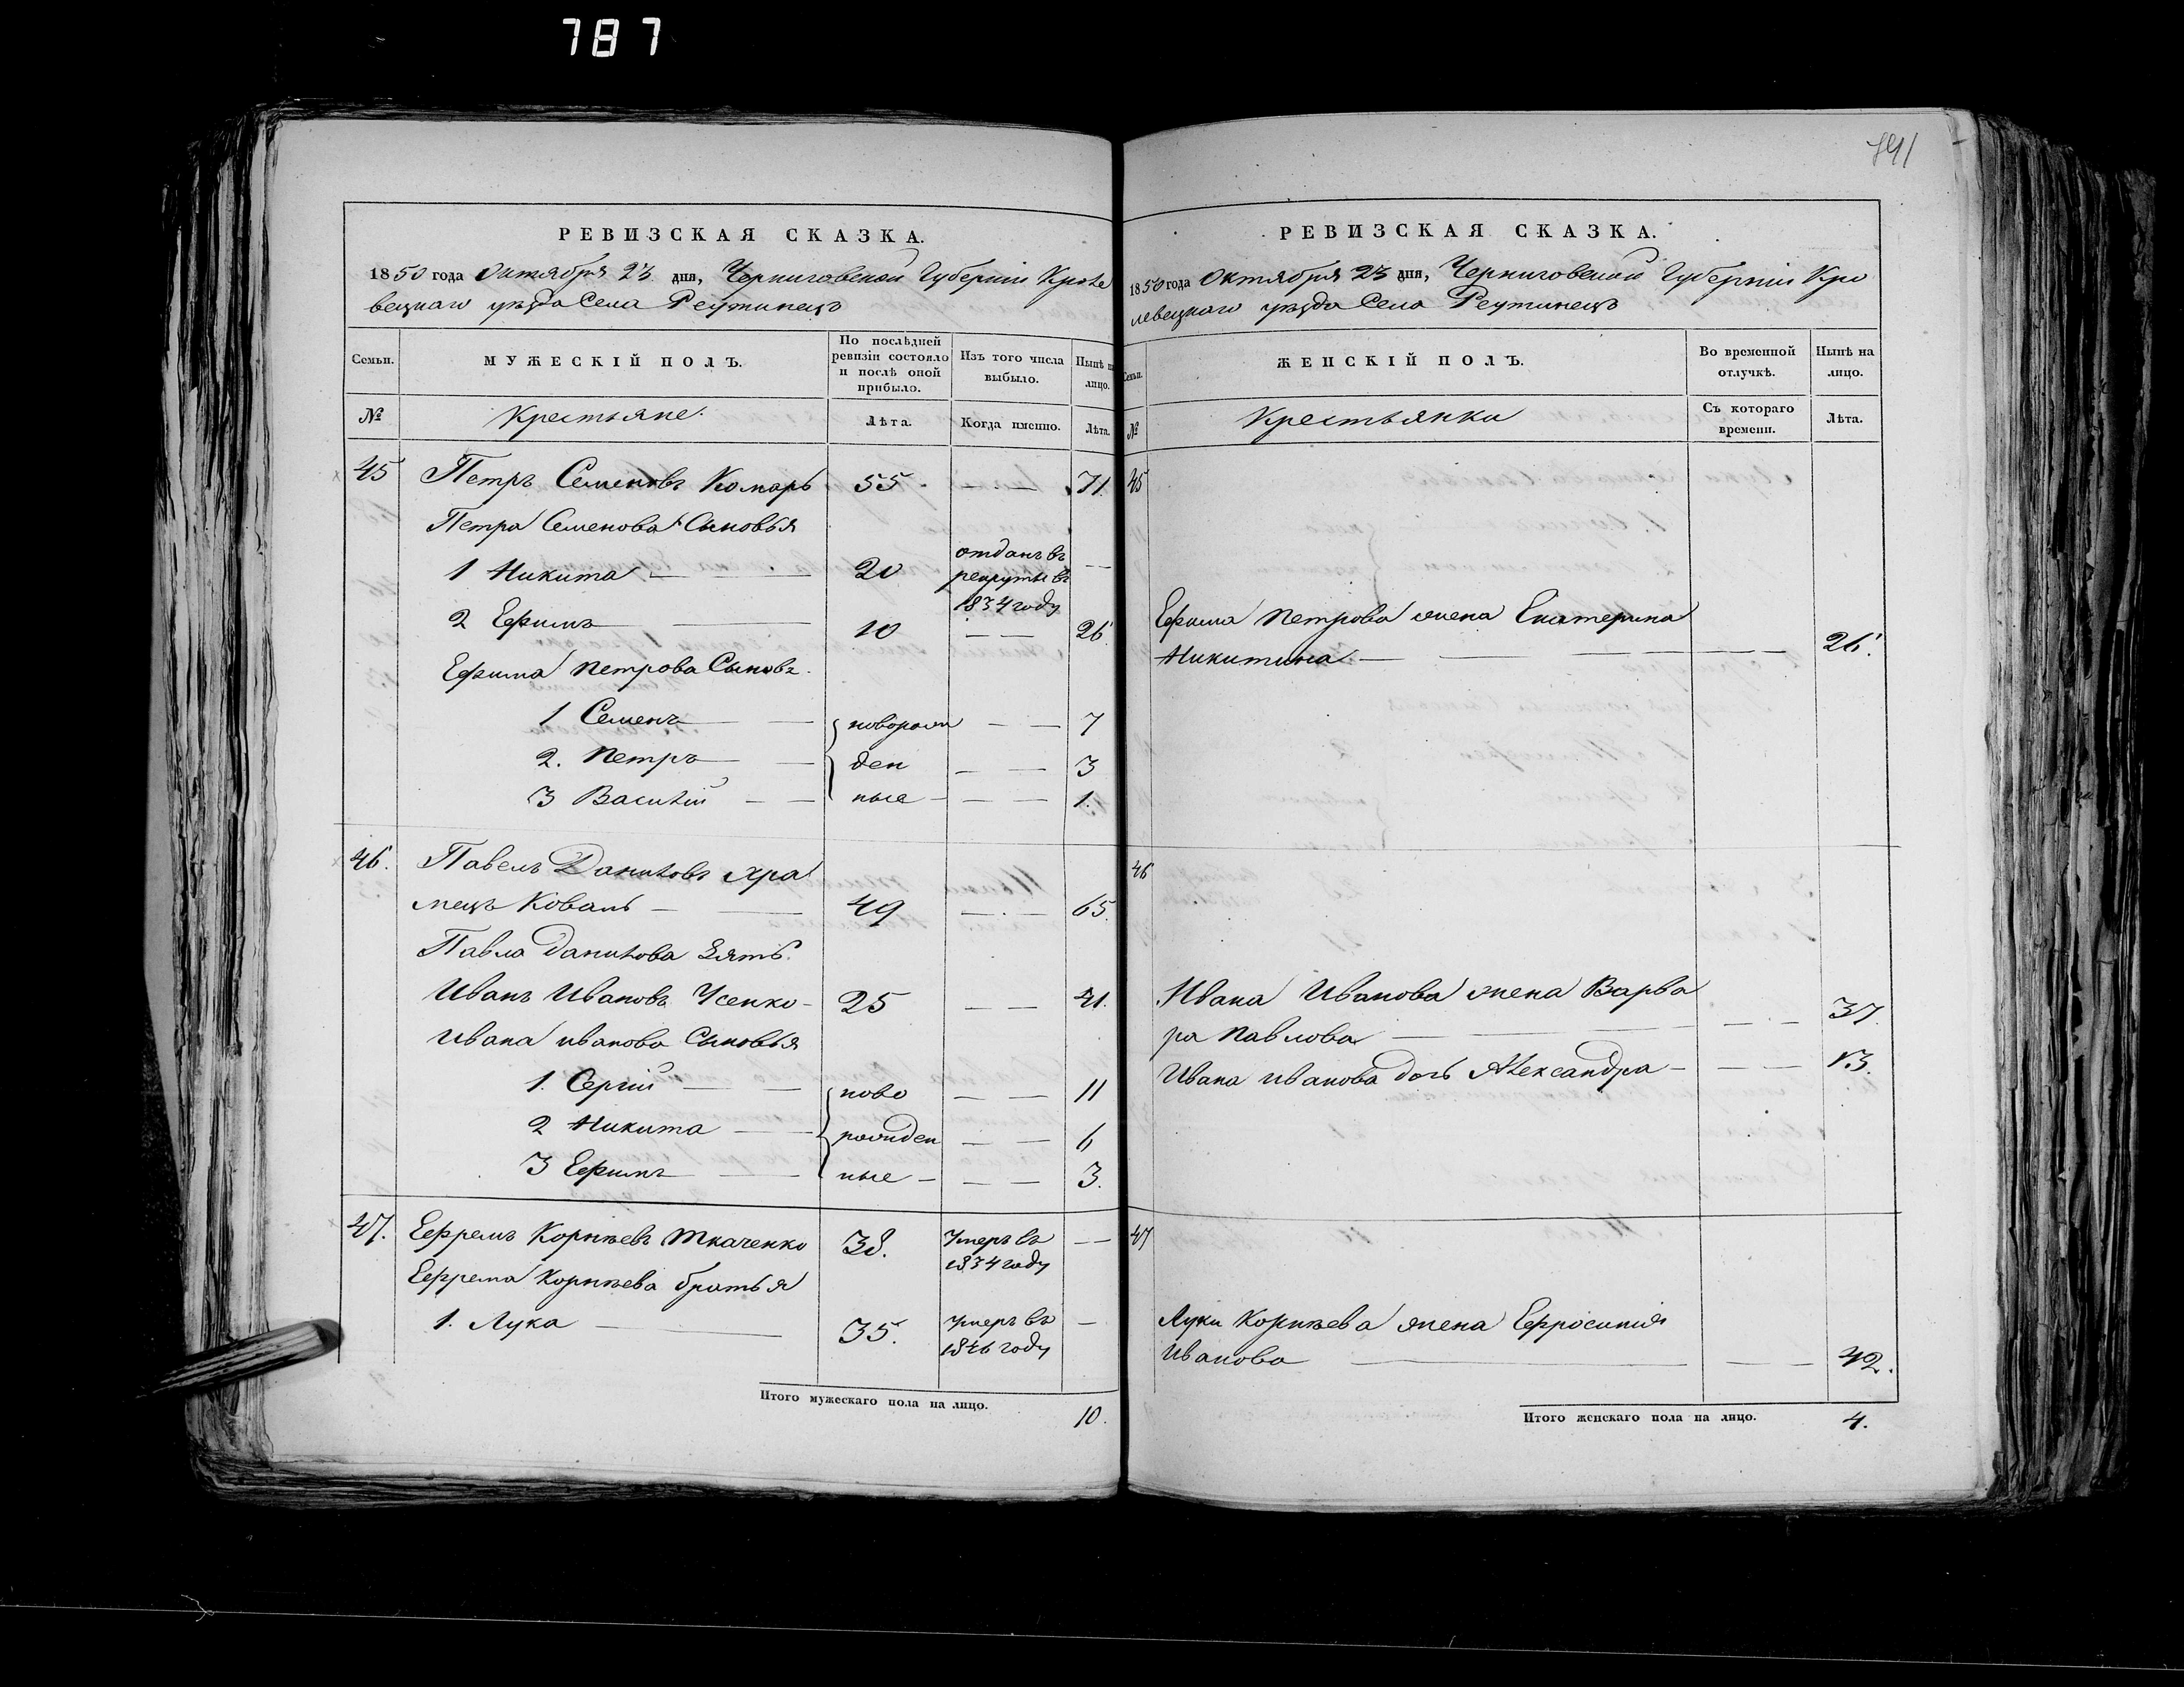 787
791
РЕВИЗСКАЯ СКАЗКА.
1850 года Октября 23 дня, Черниговской Губерніи Кроле
вецкаго уѣзда Села Реутинецъ
Семьи.
МУЖЕСКІЙ ПОЛЪ.
По послѣдней
ревизіи состояло
и послѣ оной
прибыло.
Изъ того числа
выбыло.
Нынѣ на
лицо.
№
Крестьяне.
Лѣта.
Когда именно.
Лѣта.
45 Петръ Семеновъ Комаръ 55 71.
Петра Семенова Сыновья
1 Никита 20 отданъ въ
рекруты въ
1834 году
2 Ефимъ 10 26
Ефима Петрова Сыновъ
1 Семенъ новорож 7
2. Петръ ден 3
3 Василій ные 1.
46. Павелъ Даниловъ Хра
мецъ Коваль 49 65.
Павла Данилова Зять
Иванъ Ивановъ Усенко 25 41.
Ивана Иванова Сыновья
1. Сергій ново 11
2 Никита рожден 6
3 Ефимъ ные 3.
47. Ефремъ Корнѣевъ Ткаченко 38. Умеръ въ
1834 году
Ефрема Корнѣева братья
1. Лука 35. Умеръ въ
1846 году
Итого мужескаго пола на лицо.
10.
РЕВИЗСКАЯ СКАЗКА.
1850 года Октября 23 дня, Черниговской Губерніи Кро
левецкаго уѣзда Села Реутинецъ
Семьи.
ЖЕНСКІЙ ПОЛЪ.
Во временной
отлучкѣ.
Нынѣ на
лицо.
№
Крестьянки
Съ котораго
времени.
Лѣта.
45
Ефима Петрова жена Екатерина
Никитина 26.
46
Ивана Иванова жена Варва
ра Павлова 37.
Ивана Иванова дочь Александра 13.
47
Луки Корнѣева жена Ефросинія
Иванова 42.
Итого женскаго пола на лицо.
4.